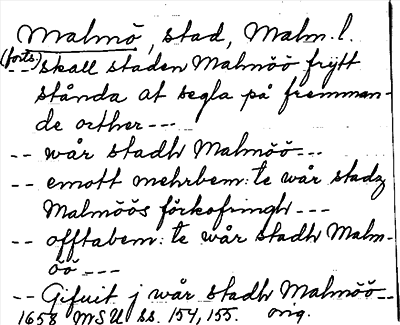 Malmö, stad, Malm. l.
(forts.)
-- skall staden Malmöö frÿtt
stånda at segla på fremman-
de orther ---
-- wår stadh Malmöö ---
-- emott mehrbem:te wår stadz
Malmöös förkofringh ---
-- offtabem:te wår stadh Malm-
öö ---
-- Gifuit j wår stadh Malmöö --
1658 MSU ss. 154, 155. orig.